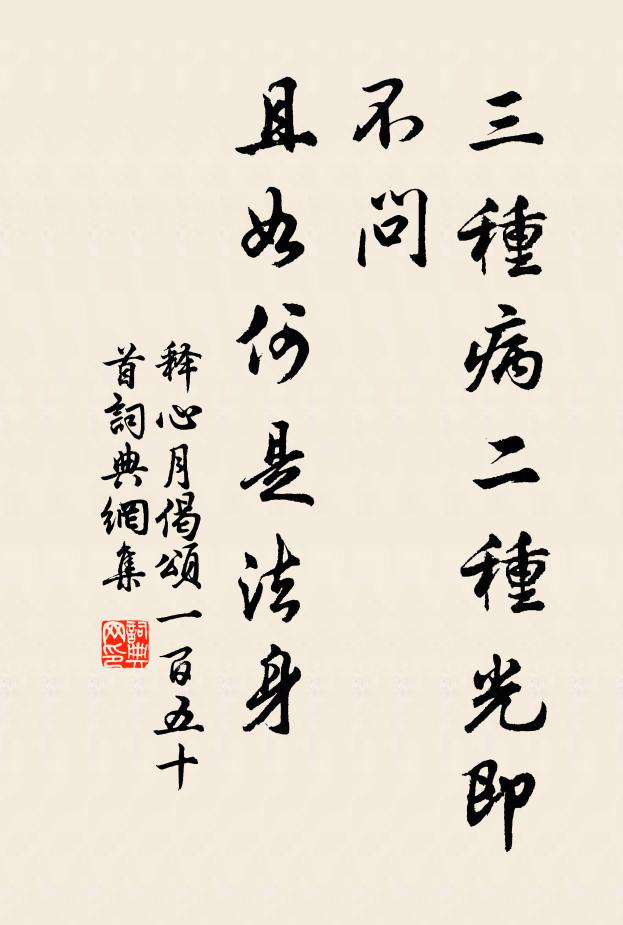 三種病二種光即
不問
且如何是法身
释心月偈頌一百五十
首詞典網集
詞典
网印